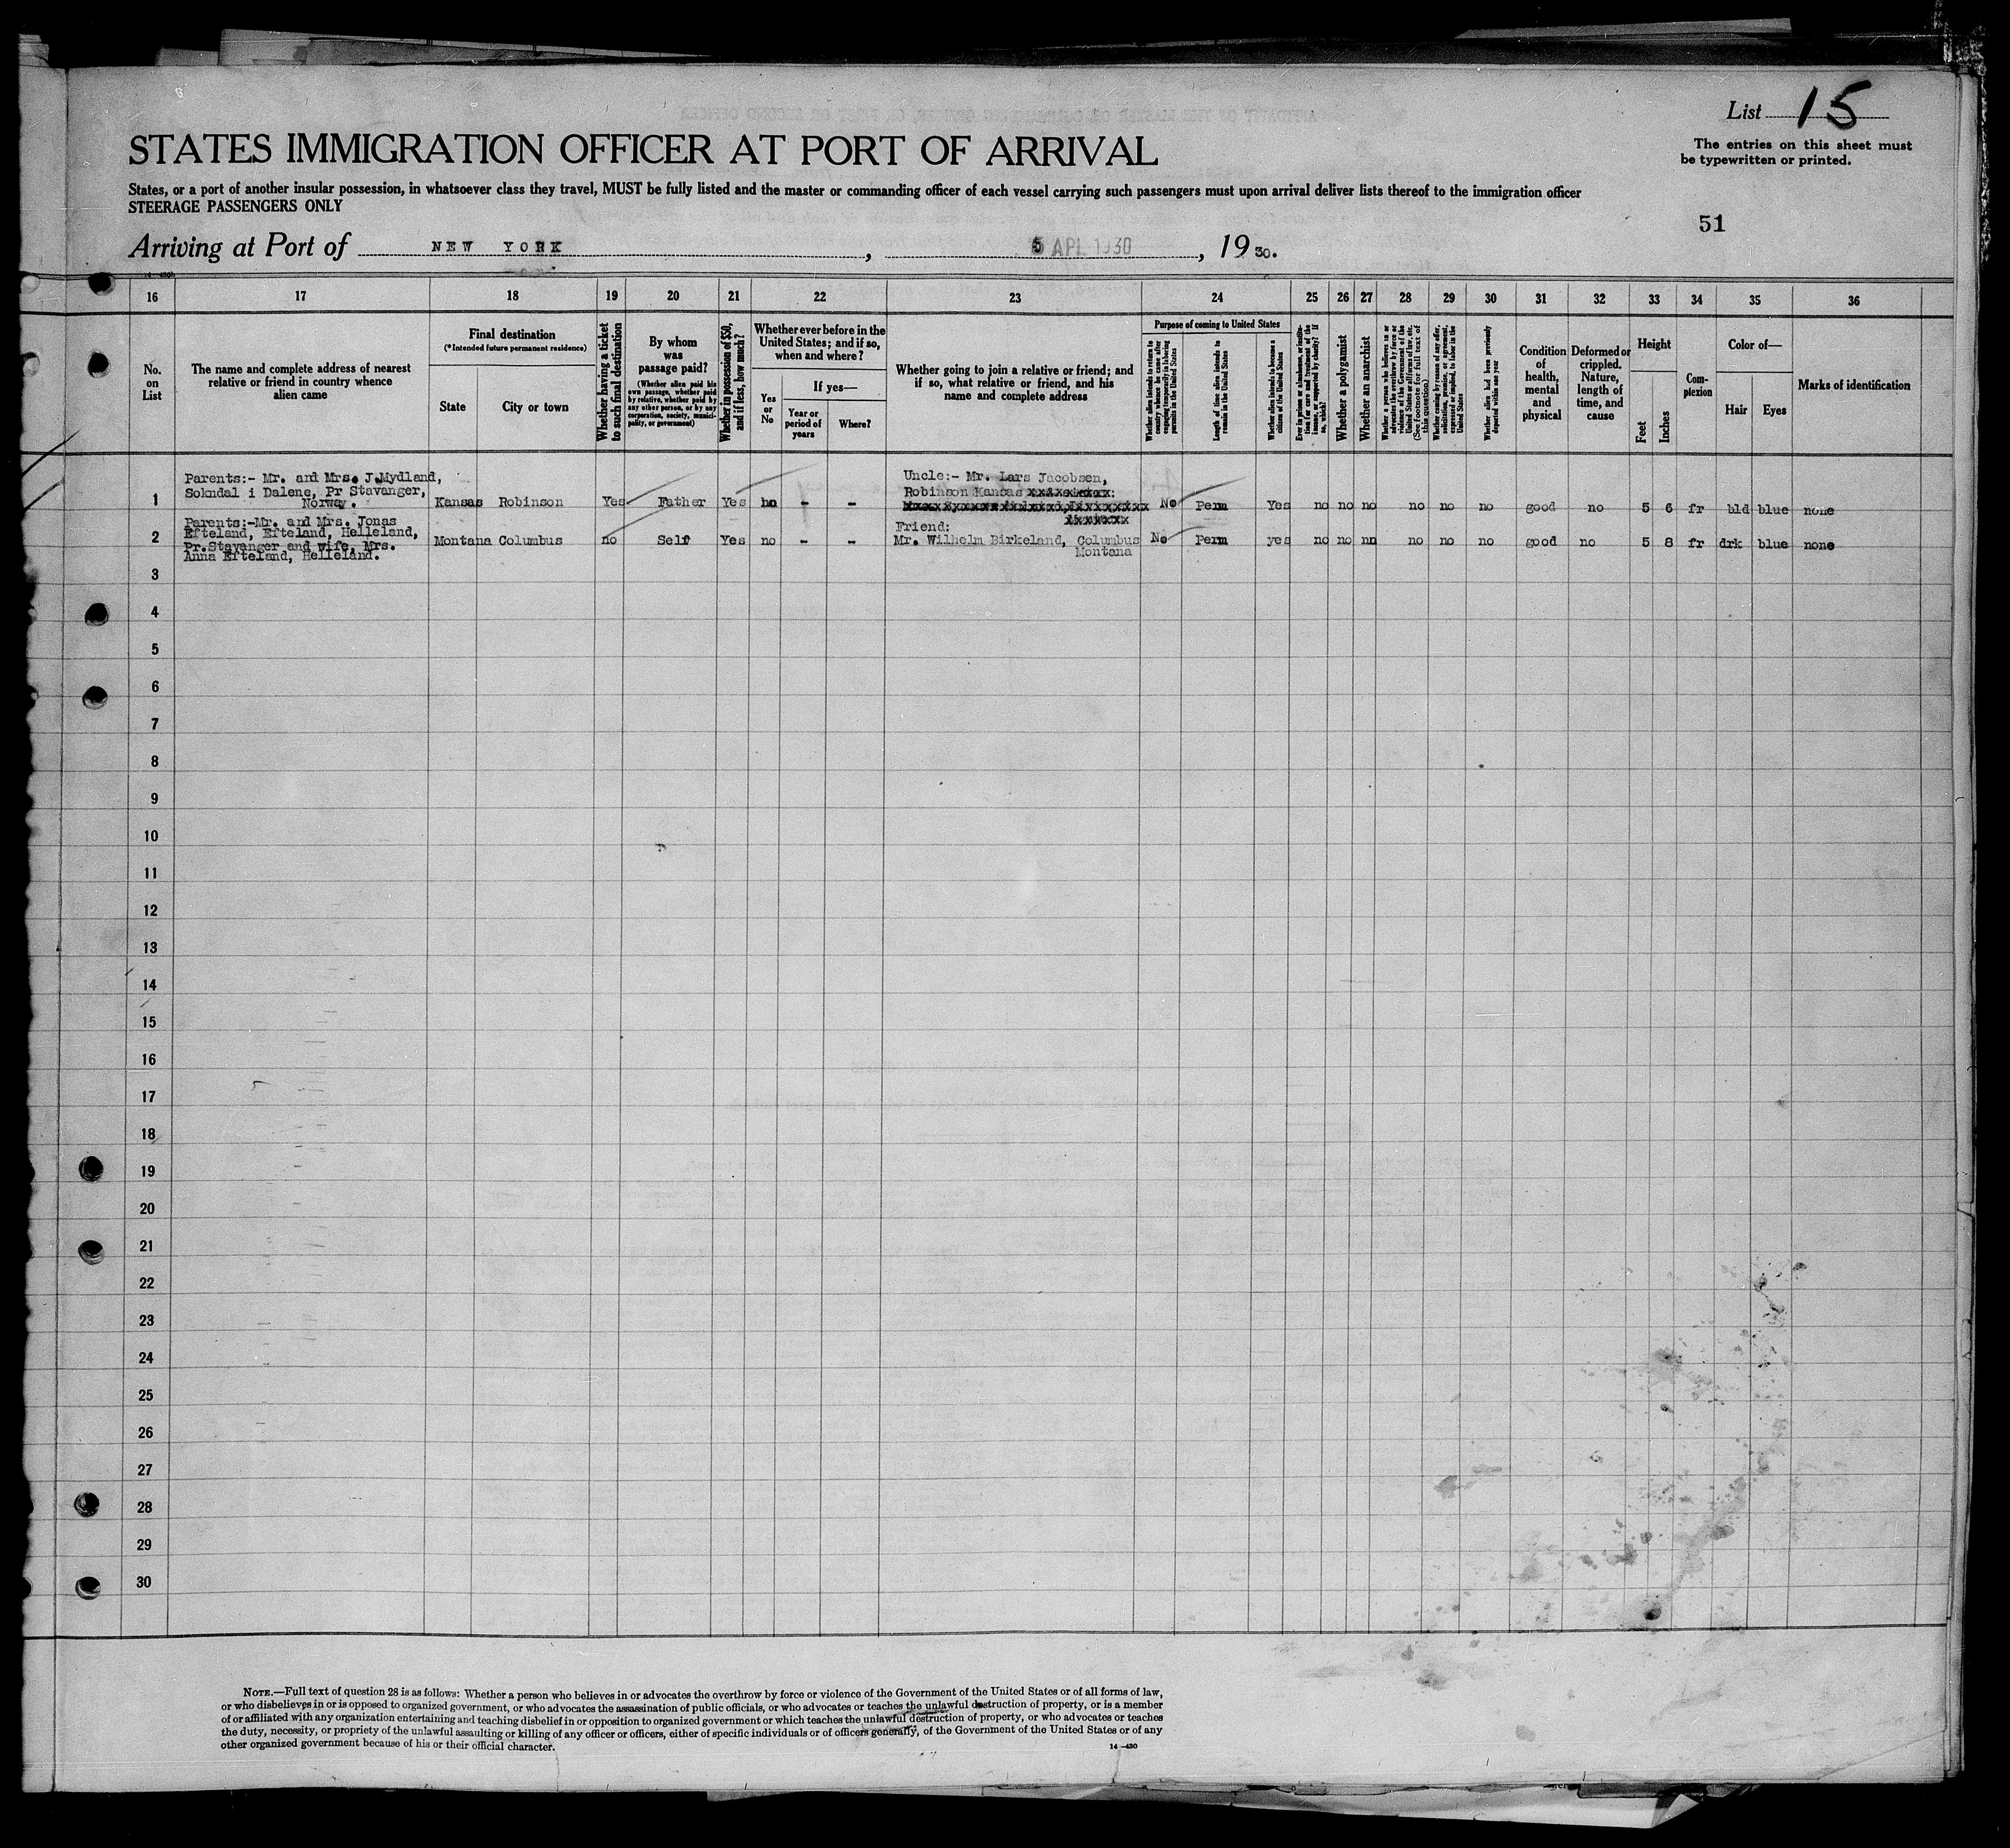 List 15
The entries on this sheet must
be typewritten or printed.
STATES IMMIGRATION OFFICER AT PORT OF ARRIVAL
States, or a port of another insular possession, in whatsoever class they travel, MUST be fully listed and the master or commanding officer of each vessel carrying such passengers must upon arrival deliver lists thereof to the immigration officer
STEERAGE PASSENGERS ONLY
51
Arriving at Port of NEW YORK, 5 APL 1930, 19 30.
16 17 18 19 20 21 22 23 24 25 26 27 28 29 30 31 32 33 34 35 36
No.
on
List
The name and complete address of nearest
relative or friend in country whence
alien came
Final destination
(*Intended future permanent residence)
State
City or town
Whether having a ticket
to such final destination
By whom
was
passage paid?
(Whether alien paid his
own passage, whether paid
by relative, whether paid by
any other person, or by any
corporation, society, munici-
pality, or government)
Whether in possession of $50,
and if less, how much?
Whether ever before in the
United States; and if so,
when and where?
Yes
or
No
If yes—
Year or
period of
years
Where?
Whether going to join a relative or friend; and
if so, what relative or friend, and his
name and complete address
Purpose of coming to United States
Whether alien intends to return to
country whence he came after
engaging temporarily in laboring
pursuits in the United States
Length of time alien intends to
remain in the United States
Whether alien intends to become a
citizen of the United States
Ever in prison or almshouse, or institu-
tion for care and treatment of the
insane, or supported by charity? If
so, which?
Whether a polygamist
Whether an anarchist
Whether a person who believes in or
advocates the overthrow by force or
violence of the Government of the
United States or all forms of law, etc.
(See footnote for full text of
this question)
Whether coming by reason of any offer,
solicitation, promise, or agreement,
expressed or implied, to labor in the
United States
Whether alien had been previously
deported within one year
Condition
of
health,
mental
and
physical
Deformed or
crippled.
Nature,
length of
time, and
cause
Height
Feet
Inches
Com-
plexion
Color of—
Hair
Eyes
Marks of identification
Parents:- Mr. and Mrs. J.Mydland,
Sokndal i Dalene, Pr Stavanger,
Norway.
1 Kansas Robinson Yes Father Yes no - -
Uncle:- Mr. Lars Jacobsen,
Robinson Kansas
No Perm Yes no no no no no no good no 5 6 fr bld blue none
Parents:-Mr. and Mrs. Jonas
Efteland, Efteland, Helleland,
Pr.Stavanger and wife, Mrs.
Anna Efteland, Helleland.
2 Montana Columbus no Self Yes no - -
Friend:
Mr. Wilhelm Birkeland, Columbus
Montana
No Perm yes no no no no no no good no 5 8 fr drk blue none
3
4
5
6
7
8
9
10
11
12
13
14
15
16
17
18
19
20
21
22
23
24
25
26
27
28
29
30
NOTE.—Full text of question 28 is as follows: Whether a person who believes in or advocates the overthrow by force or violence of the Government of the United States or of all forms of law,
or who disbelieves in or is opposed to organized government, or who advocates the assassination of public officials, or who advocates or teaches the unlawful destruction of property, or is a member
of or affiliated with any organization entertaining and teaching disbelief in or opposition to organized government or which teaches the unlawful destruction of property, or who advocates or teaches
the duty, necessity, or propriety of the unlawful assaulting or killing of any officer or officers, either of specific individuals or of officers generally, of the Government of the United States or of any
other organized government because of his or their official character.
14—430